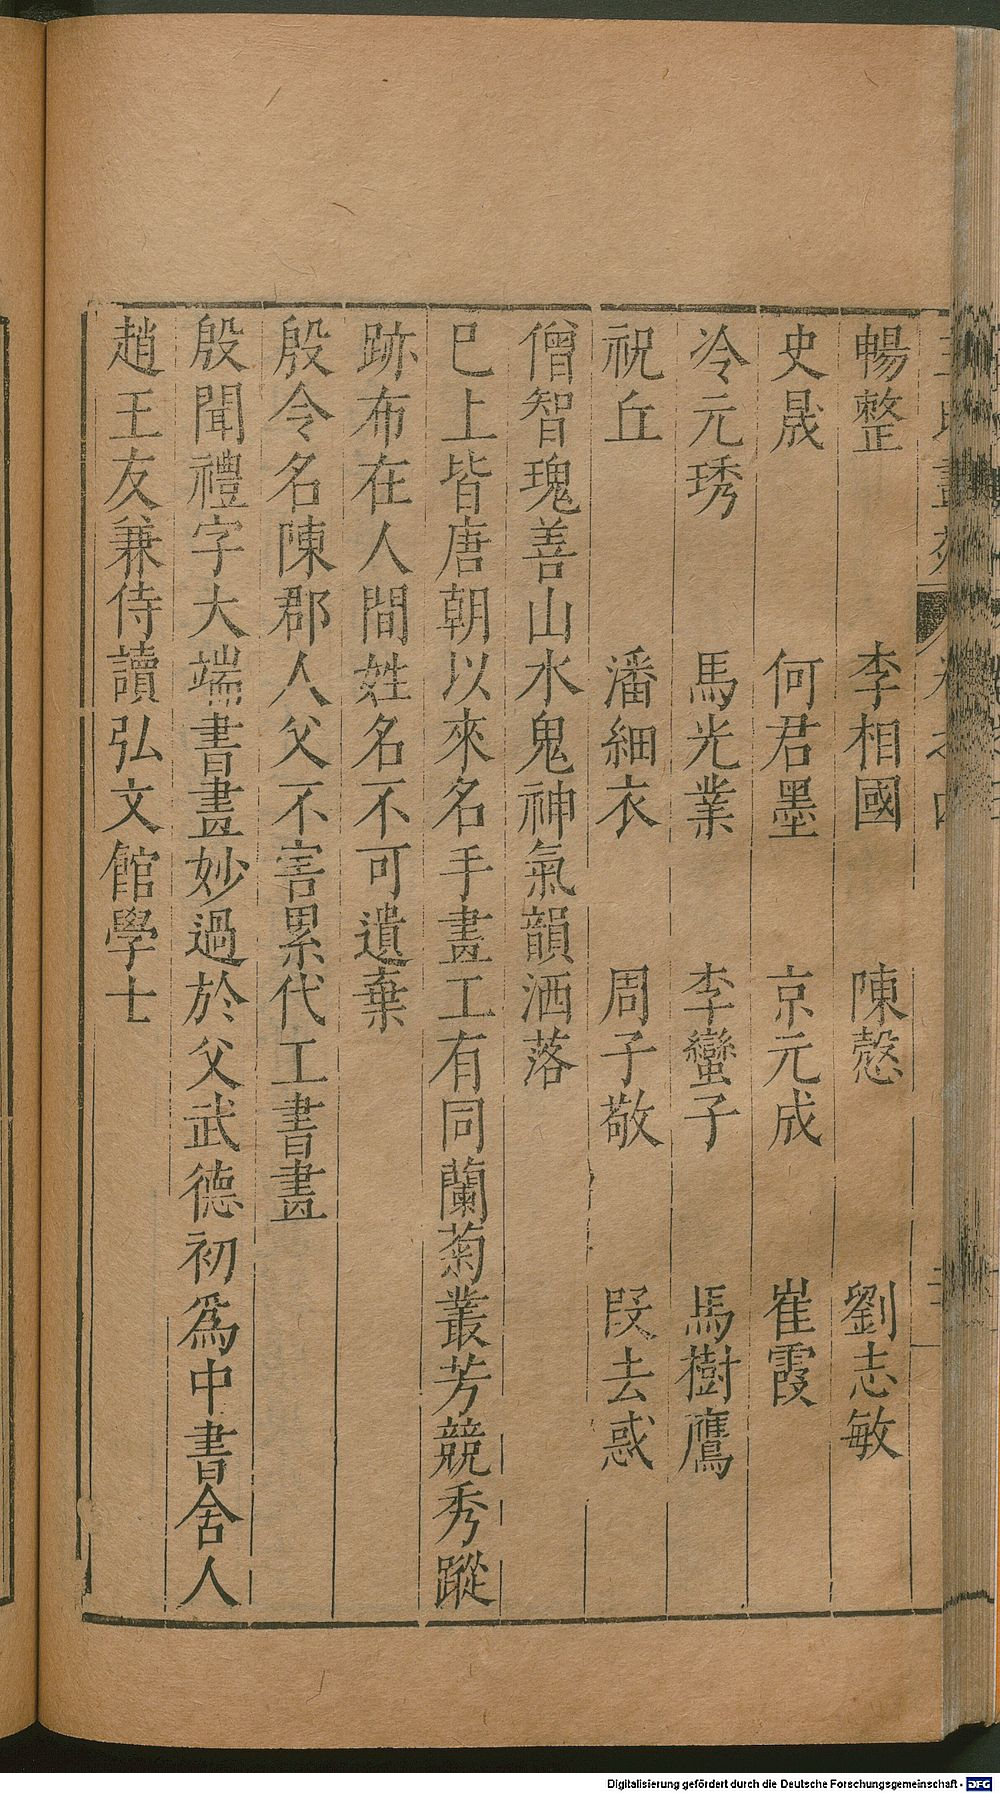 暢整　李相國　陳慤　劉志敏
史晟　何君墨　京元成　崔霞
冷元琇　馬光業　李蠻子　馬樹鷹
祝丘　潘細衣　周子敬　段去惑
僧智瑰善山水鬼神氣韻洒落
巳上皆唐朝以來名手畫工有同蘭菊叢芳競秀蹤
跡布在人間姓名不可遺棄
殷令名陳郡人父不害累代工書畫
殷聞禮字大端書畫妙過於父武德初爲中書舍人
趙王友兼侍讀弘文館學士
Digitalisierung gefördert durch die Deutsche Forschungsgemeinschaft - DFG